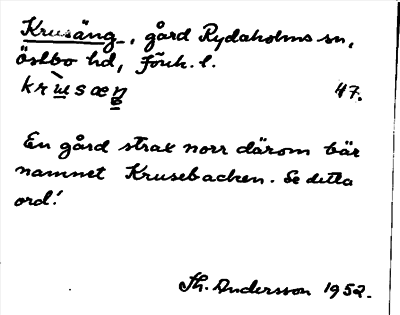 Krusäng, gård Rydaholms sn,
östbo hd, Jönk. l.
krɯ̀sæŋ 47.
En gård strax norr därom bär
namnet Krusebacken. Se detta
ord!
Th. Andersson 1952.